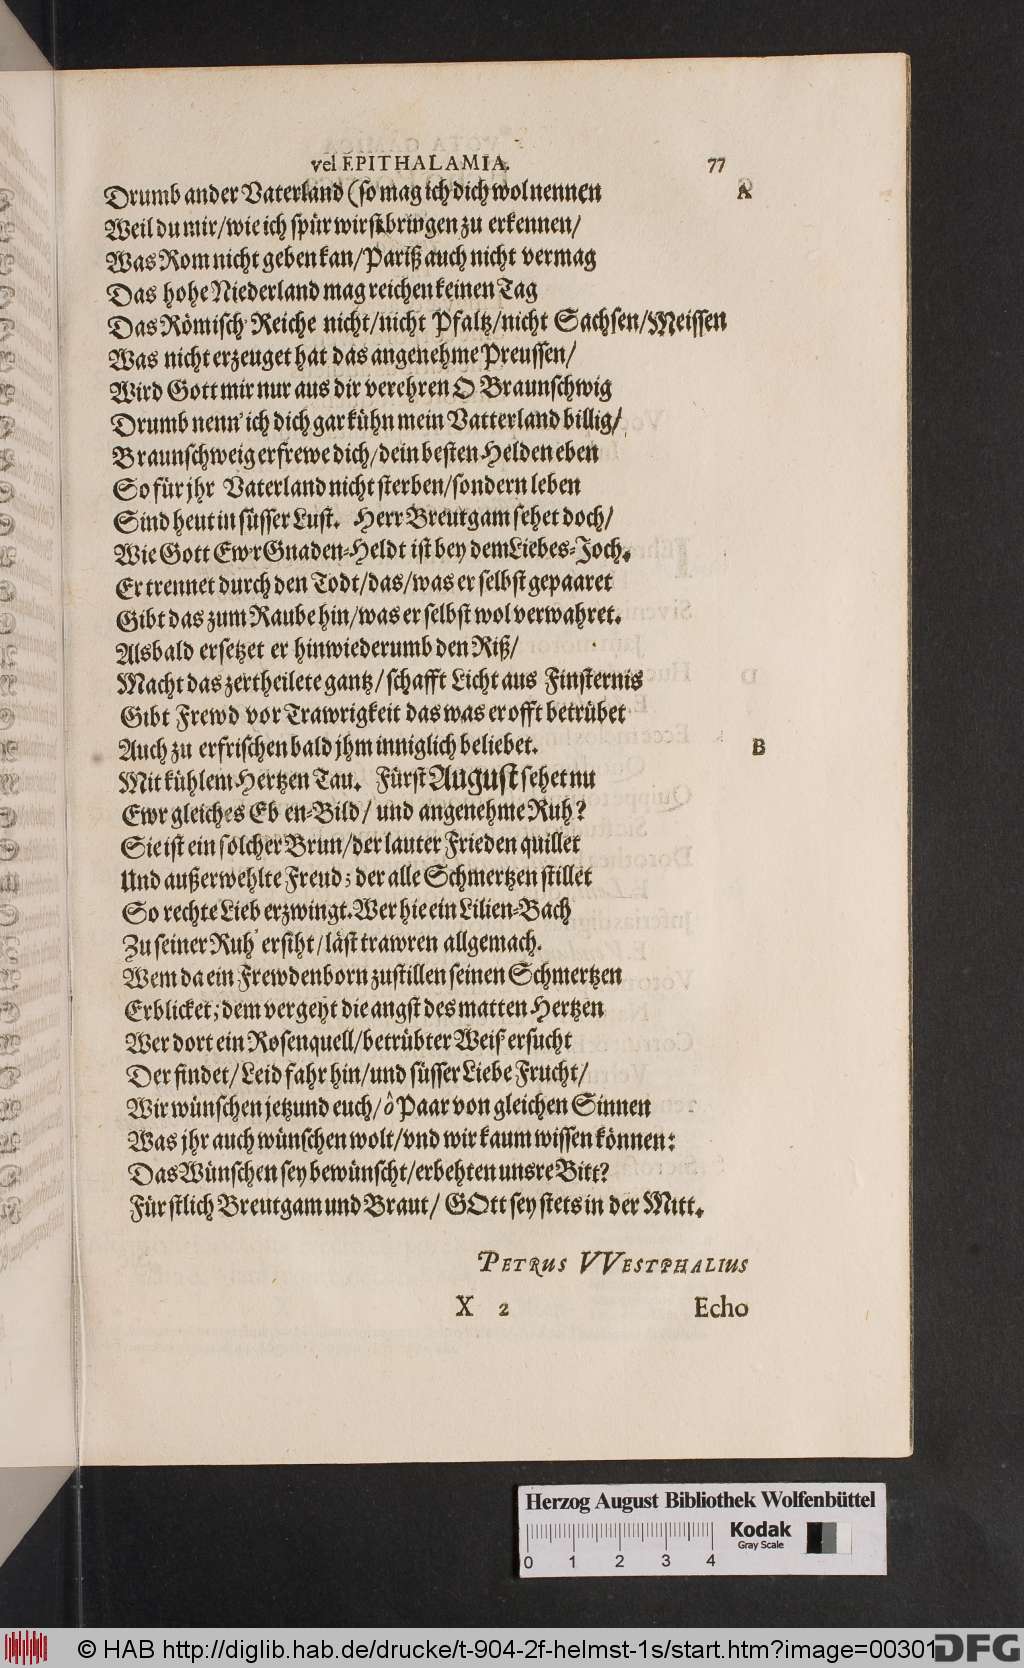 vel EPITHALAMIA. 77
Drumb ander Vaterland (so mag ich dich wol nennen A
Weil du mir/wie ich spür wirst bringen zu erkennen/
Was Rom nicht geben kan/Pariß auch nicht vermag
Das hohe Niederland mag reichen keinen Tag
Das Römisch Reiche nicht/nicht Pfaltz/nicht Sachsen/Meissen
Was nicht erzeuget hat das angenehme Preussen/
Wird Gott mir nur aus dir verehren O Braunschwig
Drumb nenn' ich dich gar kühn mein Vatterland billig/
Braunschweig erfrewe dich/dein besten Helden eben
So für jhr Vaterland nicht sterben/sondern leben
Sind heut in süsser Lust. Herr Breutgam sehet doch/
Wie Gott Ewr Gnaden-Heldt ist bey dem Liebes-Joch.
Er trennet durch den Todt/das/was er selbst gepaaret
Gibt das zum Raube hin/was er selbst wol verwahret.
Alsbald ersetzet er hinwiederumb den Riß/
Macht das zertheilete gantz/schafft Licht aus Finsternis
Gibt Frewd vor Trawrigkeit das was er offt betrübet
Auch zu erfrischen bald jhm inniglich beliebet. B
Mit kühlem Hertzen Tau. Fürst August sehet nu
Ewr gleiches Eben-Bild/ und angenehme Ruh?
Sie ist ein solcher Brun/der lauter Frieden quillet
Und außerwehlte Freud; der alle Schmertzen stillet
So rechte Lieb erzwingt. Wer hie ein Lilien-Bach
Zu seiner Ruh' ersiht/läst trawren allgemach.
Wem da ein Frewdenborn zustillen seinen Schmertzen
Erblicket; dem vergeht die angst des matten Hertzen
Wer dort ein Rosenquell/betrübter Weiß ersucht
Der findet/Leid fahr hin/und süsser Liebe Frucht/
Wir wünschen jetzund euch/ô Paar von gleichen Sinnen
Was jhr auch wünschen wolt/vnd wir kaum wissen können:
Das Wünschen sey bewünscht/erbehten unsre Bitt?
Fürstlich Breutgam und Braut/ GOtt sey stets in der Mitt.
PETRUS VVESTPHALIUS
X 2 Echo
Herzog August Bibliothek Wolfenbüttel
0 1 2 3 4
Kodak
Gray Scale
© HAB http://diglib.hab.de/drucke/t-904-2f-helmst-1s/start.htm?image=00301
DFG